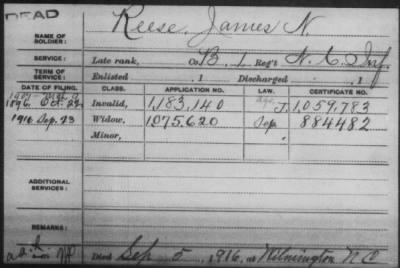 DEAD
NAME OF SOLDIER: Reese, James N.
SERVICE: Late rank, Co. B, 1 Reg't N.C. Inf.
TERM OF SERVICE: Enlisted , 1 Discharged , 1
DATE OF FILING. CLASS. APPLICATION NO. LAW. CERTIFICATE NO.
1896. Oct. 22 Invalid, 1,183,140 J. 1,059,783
1916 Sep. 23 Widow, 1,075,620 Sep. 884,482
Minor,
ADDITIONAL SERVICES:
REMARKS:
Died Sep 5, 1916, at Wilmington N.C.